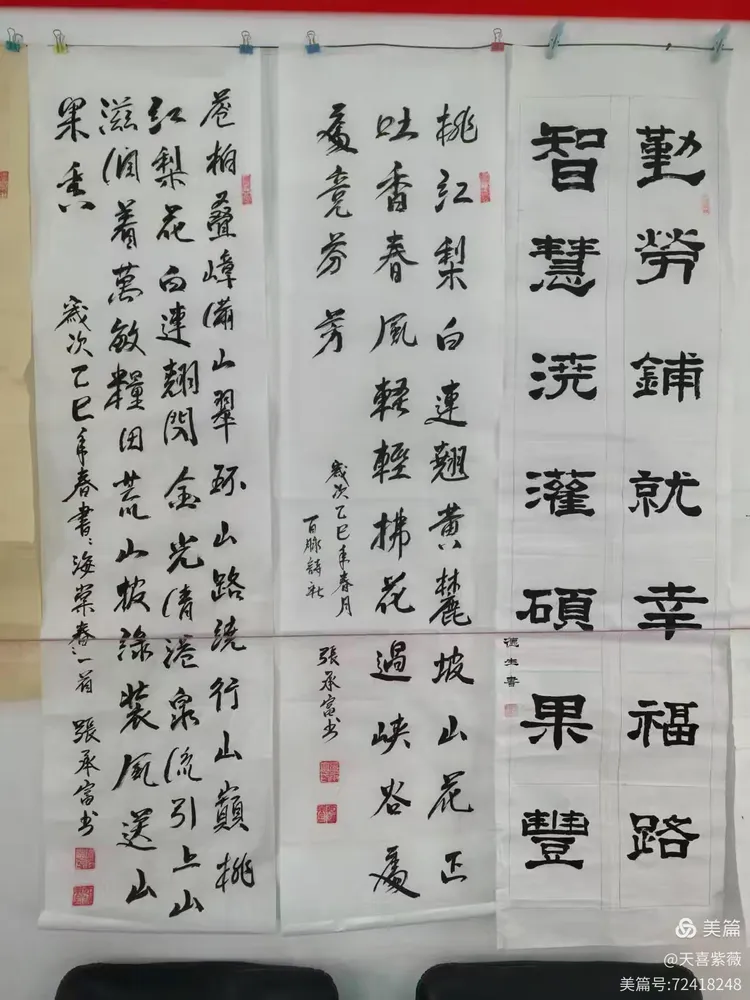 勤勞鋪就幸福路
智慧浇灌碩果豐
德生書
桃红梨白連翹黄麓坡山花正
吐香春风輕輕拂花過峡谷處
處竞芬芳
歲次乙巳年春月
百脉詩社
張承富书
苍柏叠嶂满山翠环山路绕行山巔桃
红梨花白連翹閃金光清港泉流引上山
滋润着萬畝糧田荒山披绿装风送山
果香
歲次乙巳年春書:海棠春一首 張承富书
美篇
@天喜紫薇
美篇号:72418248